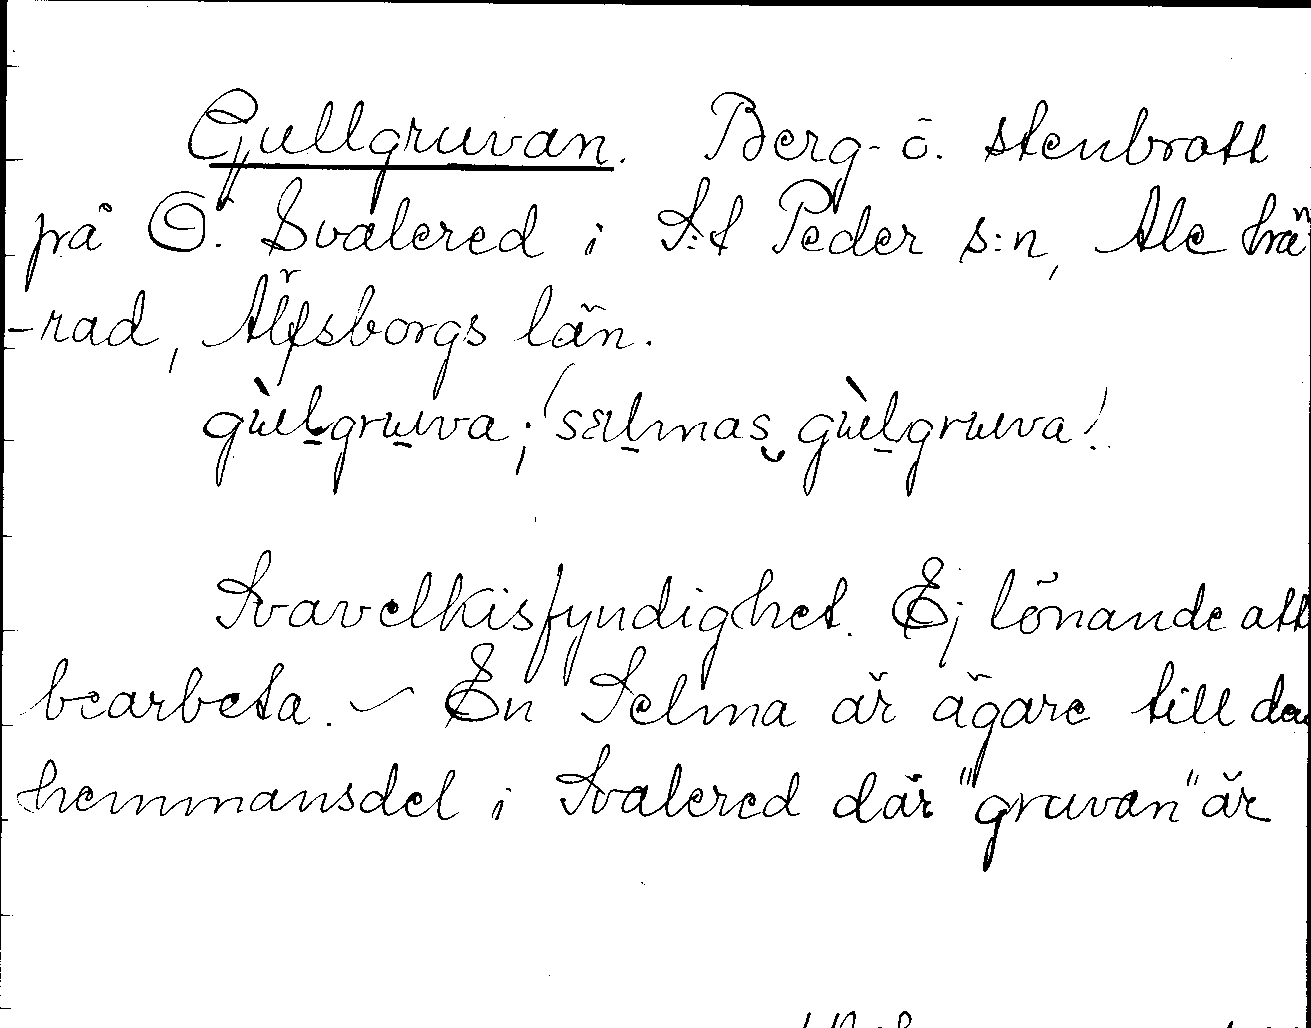 Gullgruvan. Berg- o. stenbrott
på Ö. Svalered i S:t Peder s:n, Ale hä
-rad, Älfsborgs län.
gùlgruva; (sælmas gùlgruva!
Svavelkisfyndighet. Ej lönande att
bearbeta. – En Selma är ägare till
hemmansdel i Svalered där "gruvan" är